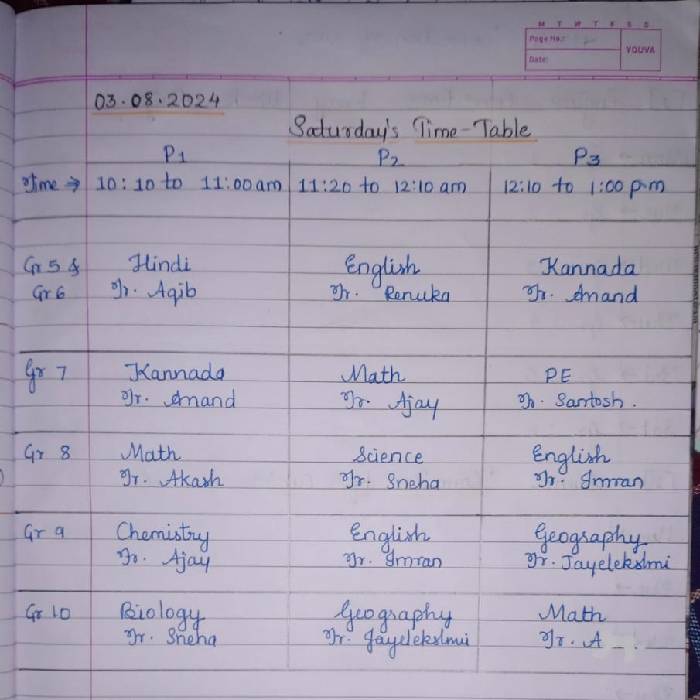 M T W T F S S
Page No.:
Date:
YOUVA
03.08.2024
Saturday's Time-Table
P1 P2 P3
Time → 10:10 to 11:00 am 11:20 to 12:10 am 12:10 to 1:00 pm
Gr 5 & Hindi English Kannada
Gr 6 Tr. Aqib Tr. Renuka Tr. Anand
Gr 7 Kannada Math PE
Tr. Anand Tr. Ajay Tr. Santosh.
Gr 8 Math Science English
Tr. Akash Tr. Sneha Tr. Imran
Gr 9 Chemistry English Geography
Tr. Ajay Tr. Imran Tr. Jayelekslmi
Gr 10 Biology Geography Math
Tr. Sneha Tr. Jayelekslmi Tr. A